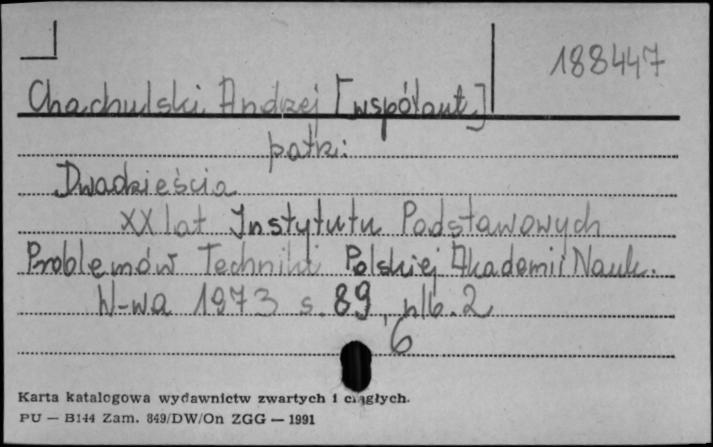 188447
Chachulski Andrzej [współaut.]
patrz:
Dwadzieścia
XX lat Instytutu Podstawowych
Problemów Techniki Polskiej Akademii Nauk.
W-wa 1973 s. 89, nlb. 2
6
Karta katalogowa wydawnictw zwartych i ciągłych.
PU — B144 Zam. 849/DW/On ZGG — 1991